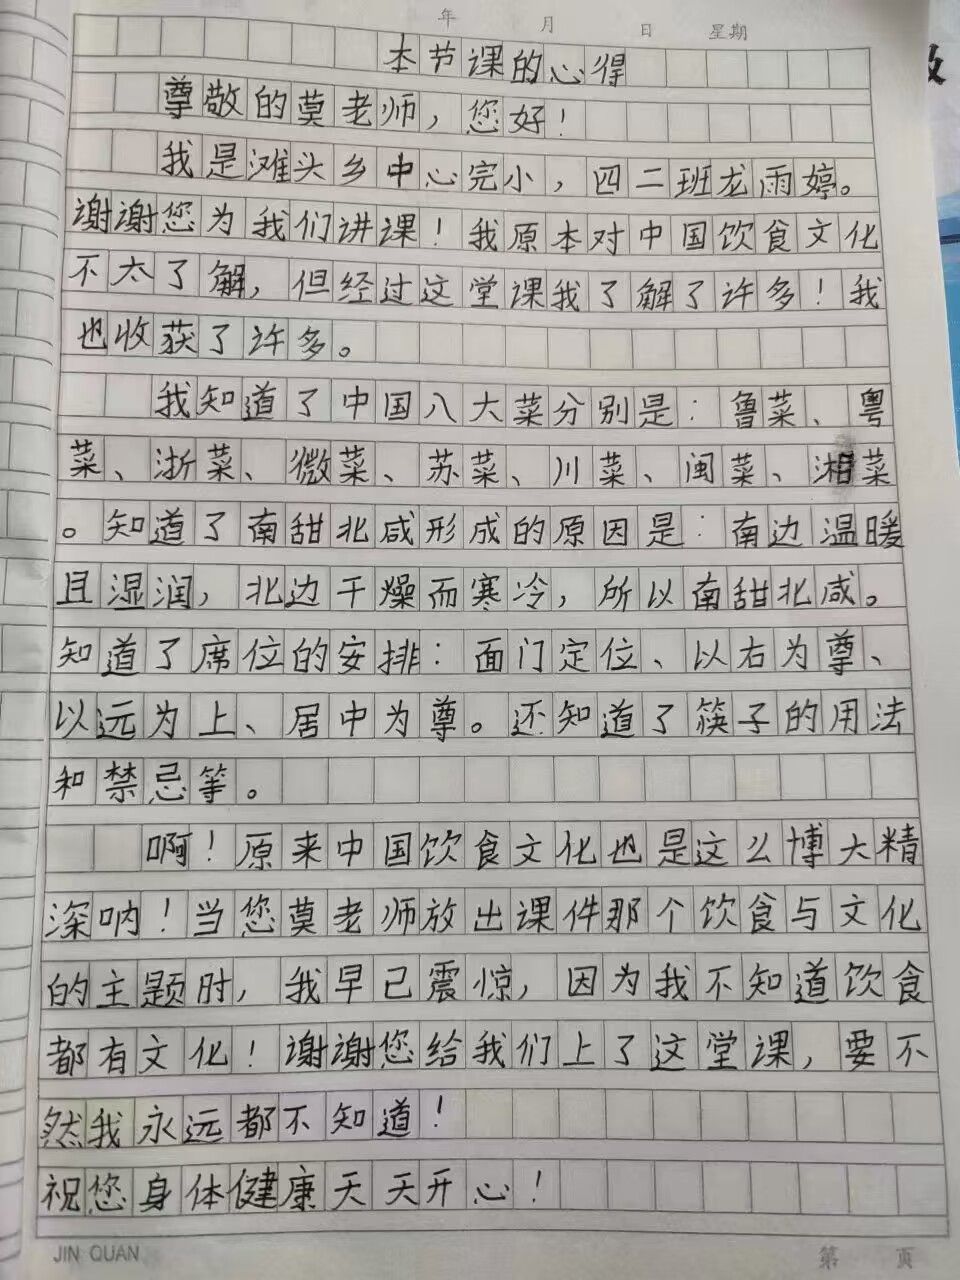 年 月 日 星期
本节课的心得
尊敬的莫老师，您好！
我是滩头乡中心完小，四二班龙雨婷。
谢谢您为我们讲课！我原本对中国饮食文化
不太了解，但经过这堂课我了解了许多！我
也收获了许多。
我知道了中国八大菜分别是：鲁菜、粤
菜、浙菜、微菜、苏菜、川菜、闽菜、湘菜
。知道了南甜北咸形成的原因是：南边温暖
且湿润，北边干燥而寒冷，所以南甜北咸。
知道了席位的安排：面门定位、以右为尊、
以远为上、居中为尊。还知道了筷子的用法
和禁忌等。
啊！原来中国饮食文化也是这么博大精
深呐！当您莫老师放出课件那个饮食与文化
的主题时，我早已震惊，因为我不知道饮食
都有文化！谢谢您给我们上了这堂课，要不
然我永远都不知道！
祝您身体健康天天开心！
JIN QUAN 第 页